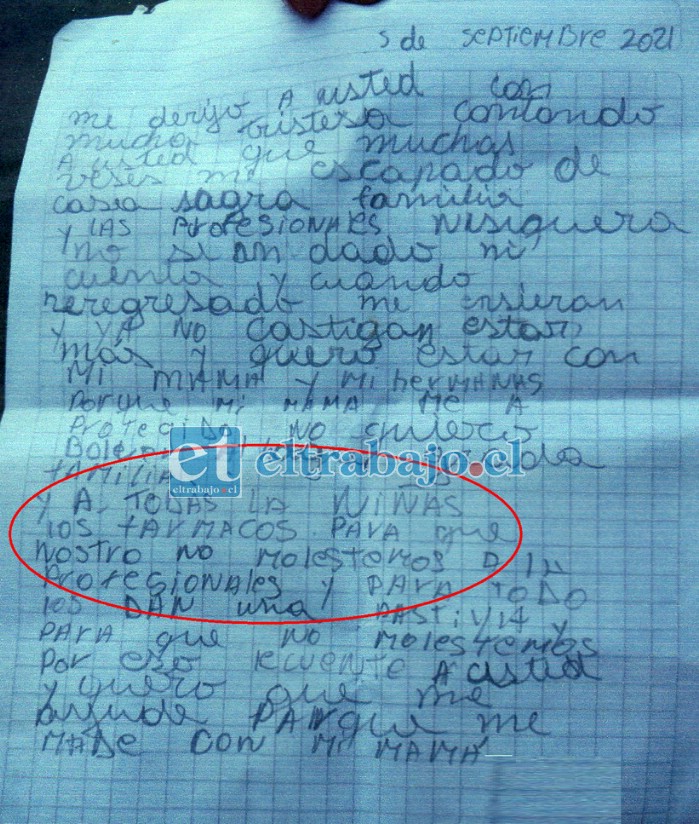 5 de septiembre 2021
me derijo A usted con
mucha tristesa contando
A usted que muchas
veses me escapado de
casa sagra familia
y LAS PROFESIONALES NISIQUERA
no si an dado ni
cuenta y cuando
neregresado me ensieran
y YA NO castigan estar
mas y quero estar con
Mi MAMA y Mi herMANAS
PORque Mi MAMA Me A
no quiero
familia
y A TODAS LA NIÑAS
los FARMACOS PARA que
Nostro no molestemos A la
Profesionales y PARA TODO
los DAN una PASTIllA y
PARA que no molestemos
Por eso Recuente A usted
y quero que me
ayude PARque me
MADE con Mi MAMA
eltrabajo.cl
eltrabajo.cl